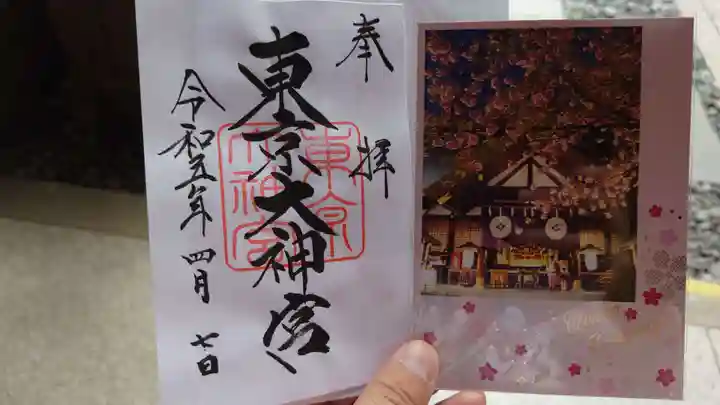 奉拝
東京大神宮
令和五年四月七日
東京
大神宮